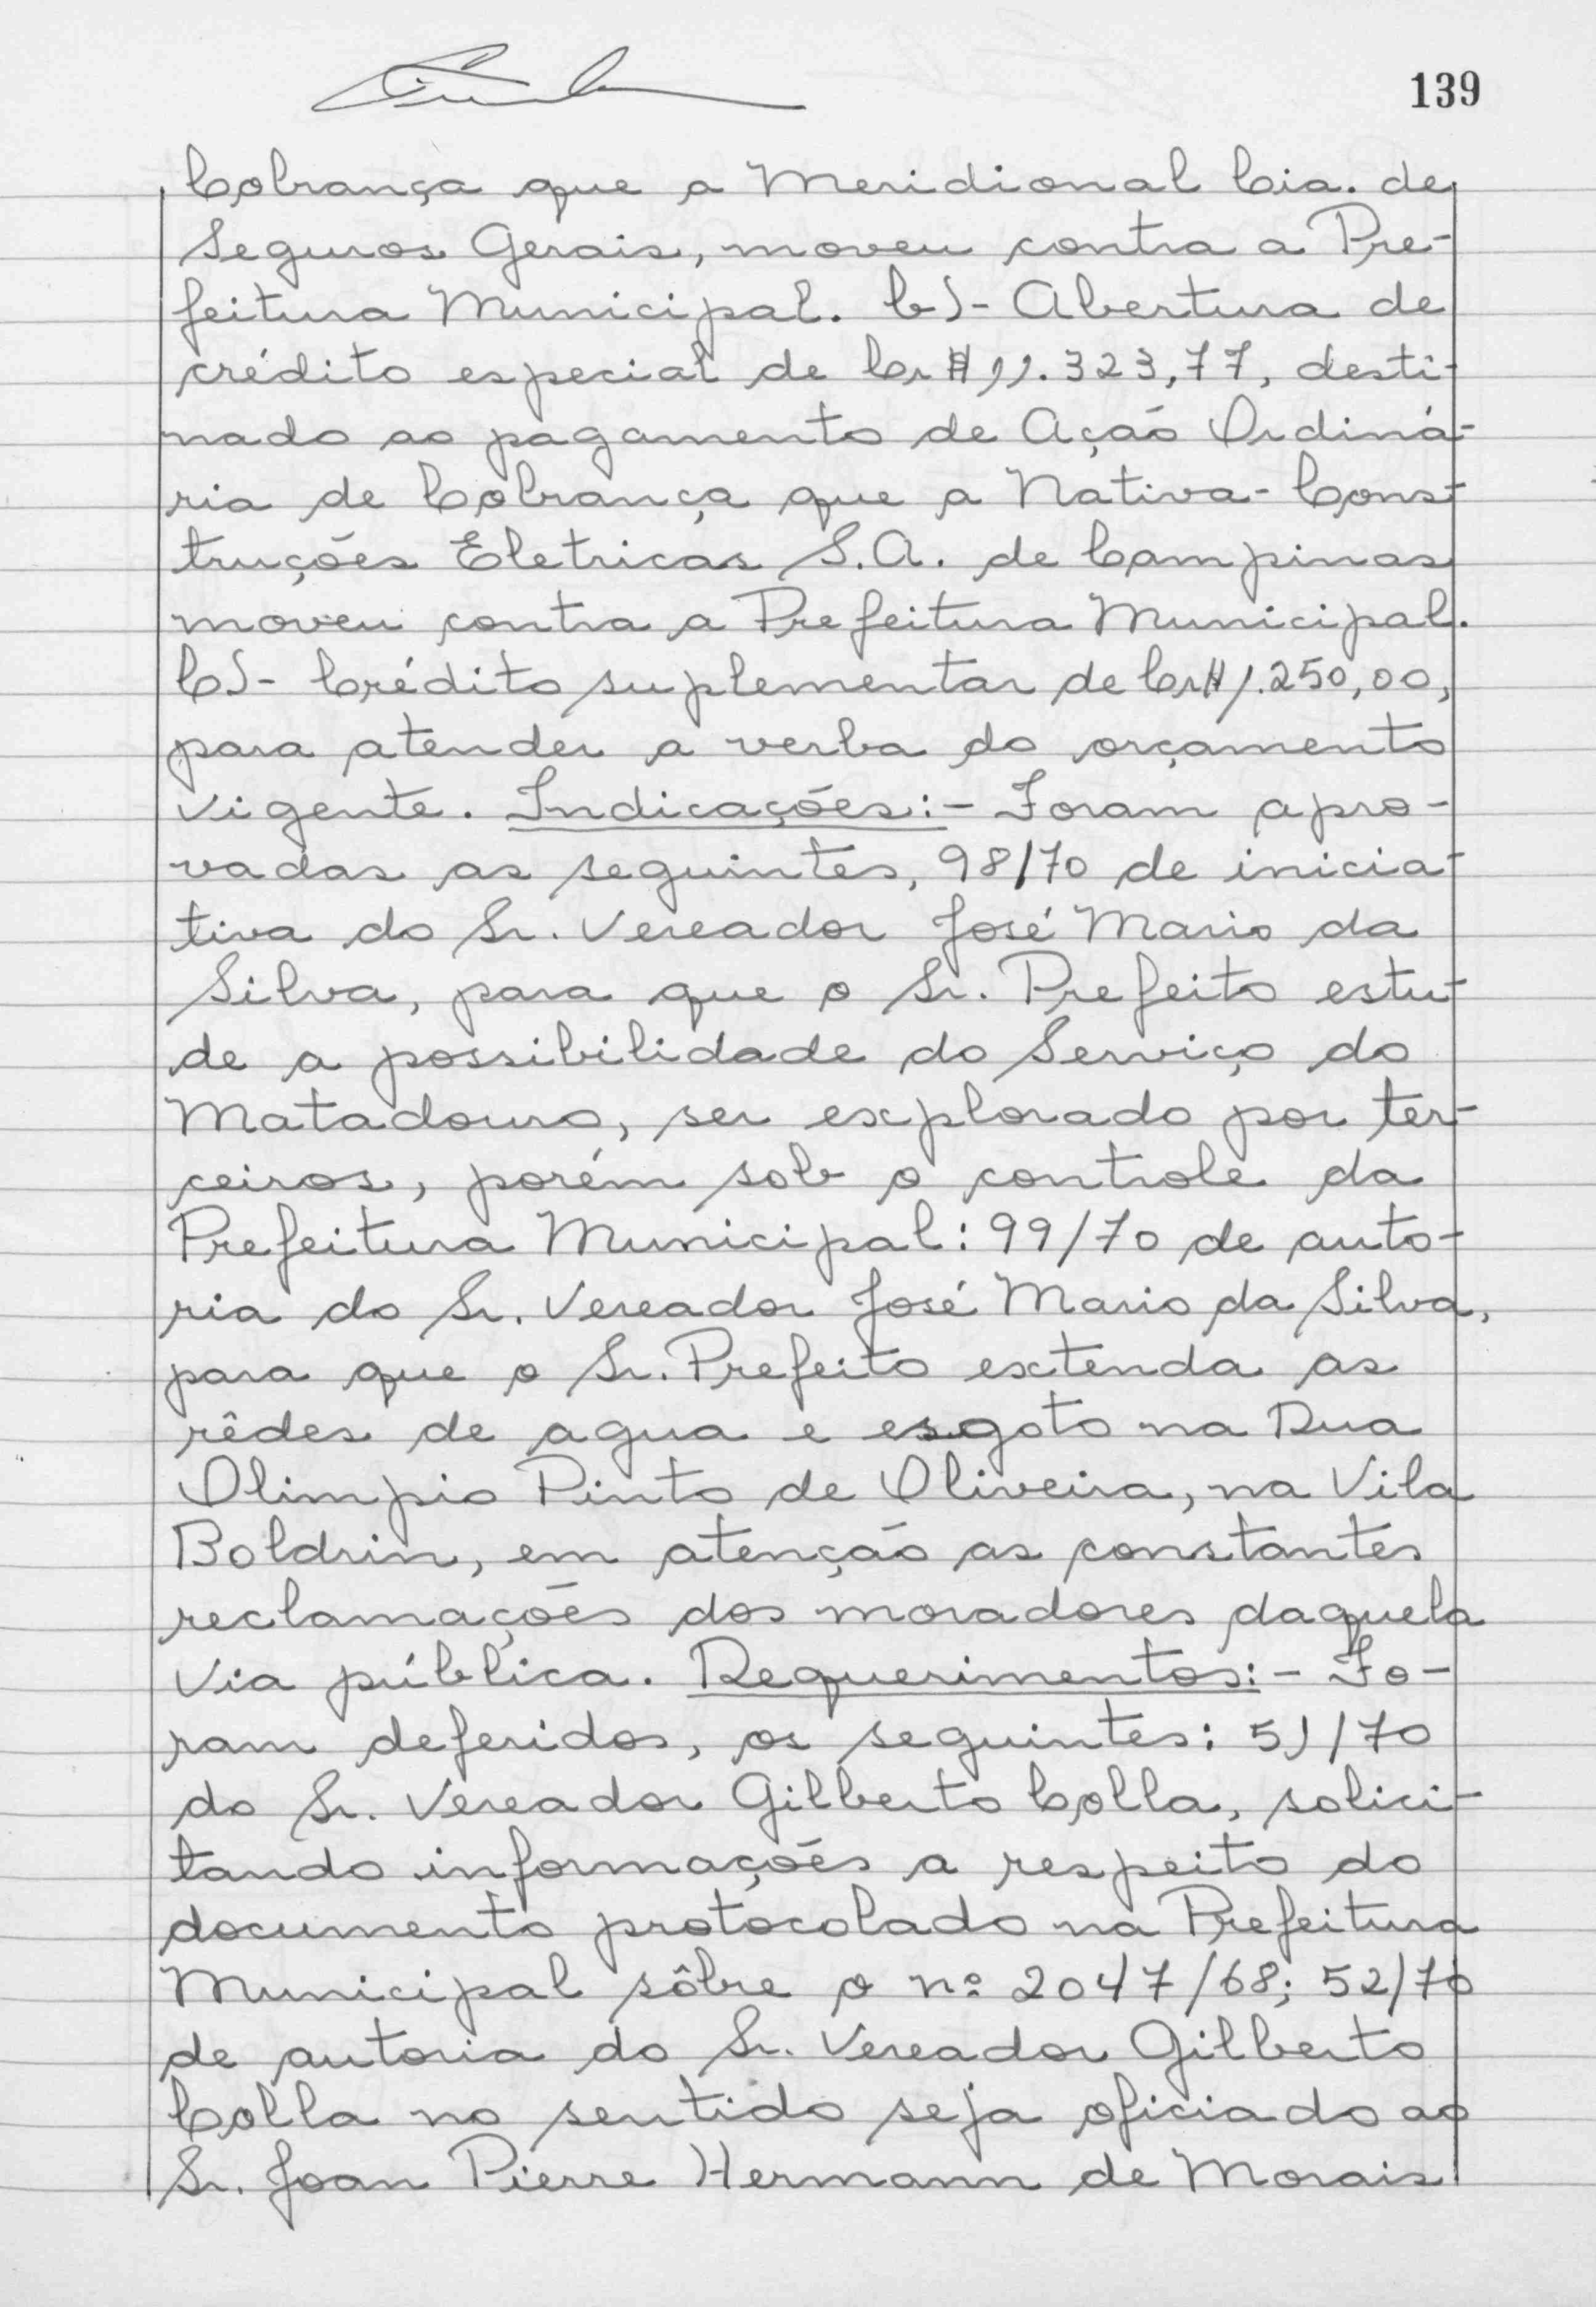 139
Cobrança que a Meridional Cia. de
Seguros Gerais, moveu contra a Pre-
feitura Municipal. b)- Abertura de
crédito especial de Cr$ 11.323,77, desti-
nado ao pagamento de Ação Ordiná-
ria de Cobrança que a Nativa-Cons-
truções Eletricas S.A. de Campinas
moveu contra a Prefeitura Municipal.
C)- Crédito suplementar de Cr$ 1.250,00,
para atender a verba do orçamento
vigente. Indicações:- Foram apro-
vadas as seguintes, 98/70 de inicia-
tiva do Sr. Vereador José Mario da
Silva, para que o Sr. Prefeito estu-
de a possibilidade do Serviço do
Matadouro, ser explorado por ter-
ceiros, porém sob o controle da
Prefeitura Municipal: 99/70 de auto-
ria do Sr. Vereador José Mario da Silva,
para que o Sr. Prefeito extenda as
rêdes de agua e esgoto na Rua
Olimpio Pinto de Oliveira, na Vila
Boldrin, em atenção as constantes
reclamações dos moradores daquela
via pública. Requerimentos:- Fo-
ram deferidos, os seguintes: 51/70
do Sr. Vereador Gilberto Colla, solici-
tando informações a respeito do
documento protocolado na Prefeitura
Municipal sôbre o nº 2047/68; 52/70
de autoria do Sr. Vereador Gilberto
Colla no sentido seja oficiado ao
Sr. Joan Pierre Hermann de Morais